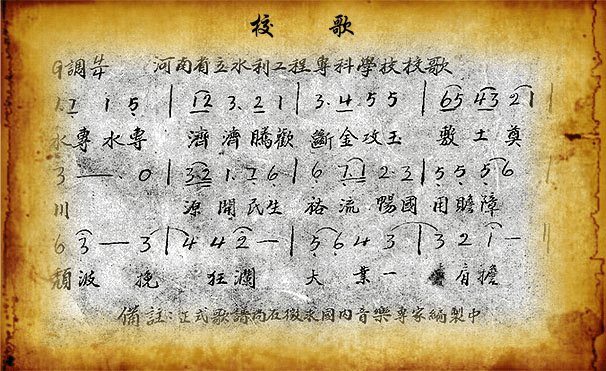 校 歌
G調 4/4 河南省立水利工程專科學校校歌
1.1 1 5 | 12 3.2 1 | 3.4 5 5 | 65 43 2 1 |
水專水專 濟濟騰歡 斷金攻玉 敷土奠
3 — — 0 | 3.2 1.7 6 | 6 7.1 2.3 | 5 5 5 6 ||
川 源開民生 裕流暢國用贍障
6 3 — 3 | 4 4 2 — | 5 6 4 3 | 3 2 1 — ||
頹波 挽 狂瀾 大業一肩擔
備註:正式歌譜尚在徵求國內音樂專家編製中